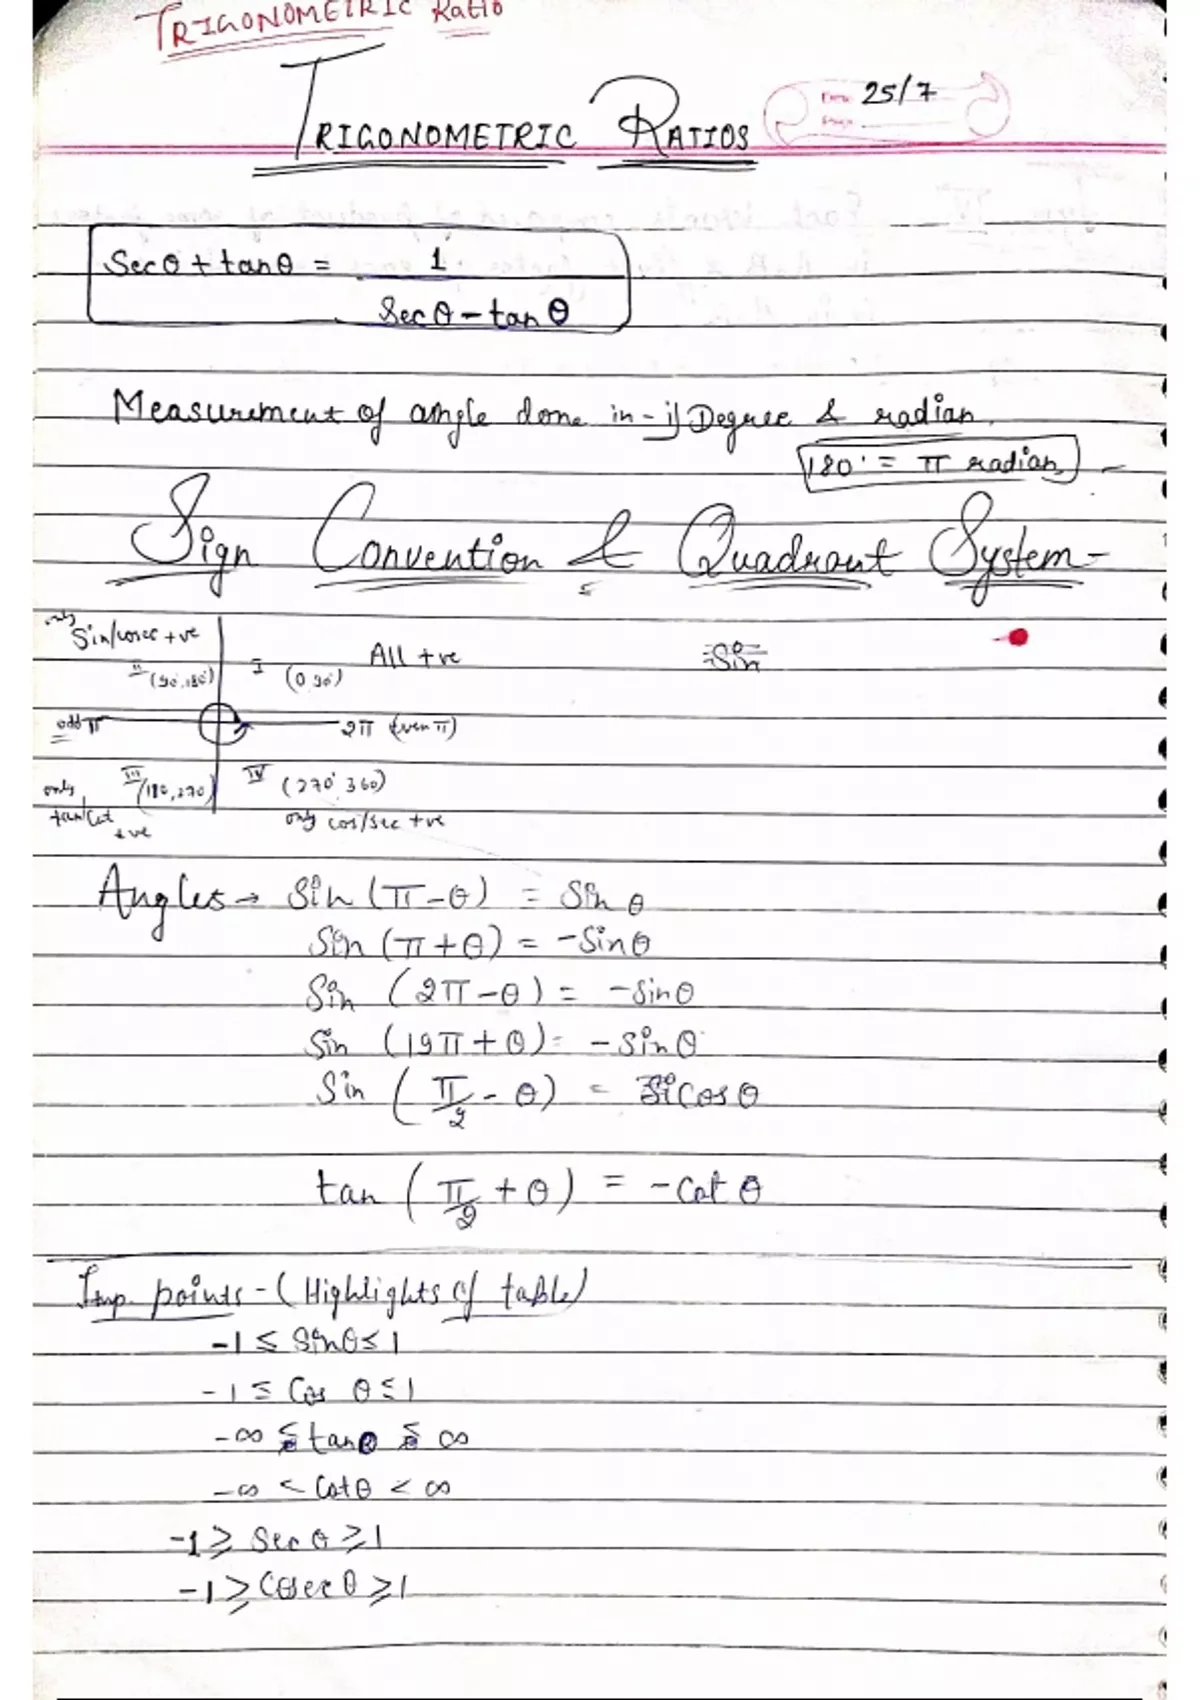 TRIGONOMETRIC Ratio
TRIGONOMETRIC RATIOS
25/7
Secθ + tanθ = 1
Secθ - tanθ
Measurement of angle done in - i) Degree & radian.
180° = π radian
Sign Convention & Quadrant System -
only Sin/cosec +ve
II (90°,180°)
I (0,90°)
All +ve
Sin
odd π
2π (even π)
III (180,270)
IV (270°,360)
only tan/Cot +ve
only cos/sec +ve
Angles → Sin (π-θ) = Sin θ
Sin (π+θ) = -Sinθ
Sin (2π-θ) = -Sinθ
Sin (19π+θ) = -Sinθ
Sin (π/2 - θ) = Cosθ
tan (π/2 + θ) = -Cot θ
Imp. points - (Highlights of table)
-1 ≤ Sinθ ≤ 1
-1 ≤ Cos θ ≤ 1
-∞ ≤ tanθ ≤ ∞
-∞ < Cotθ < ∞
-1 ⩾ Sec θ ⩾ 1
-1 ⩾ Cosec θ ⩾ 1